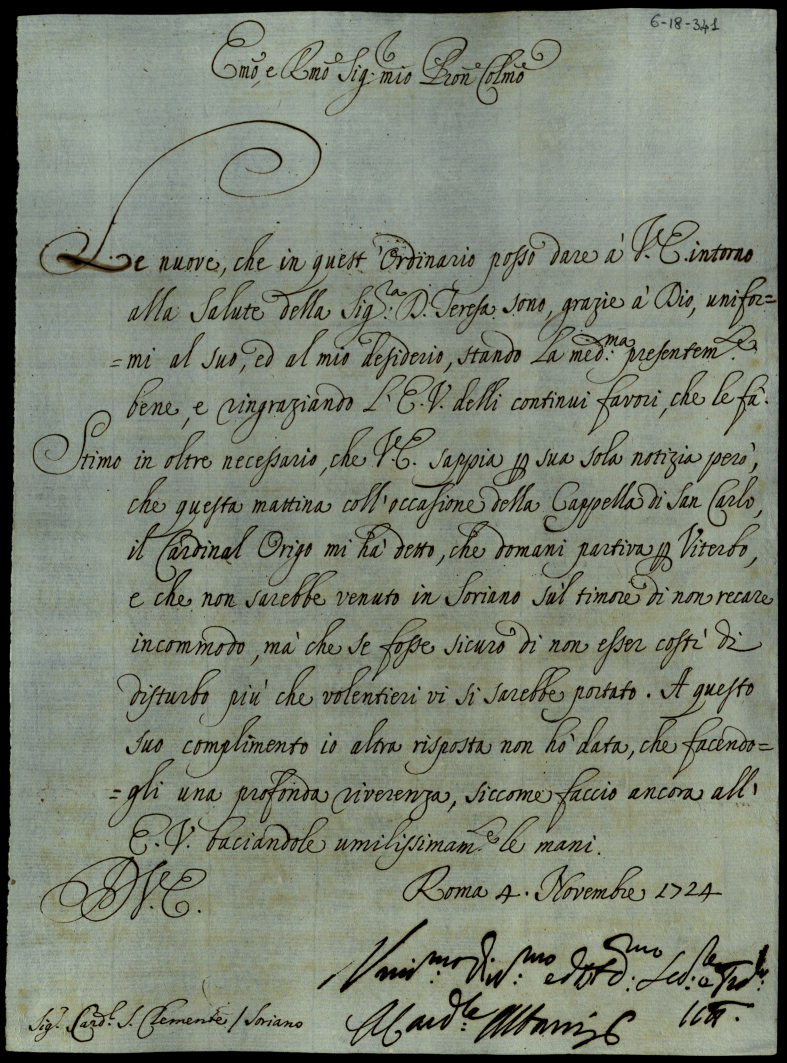 6-18-341
Emo, e Rmo Sig. mio Pron Colmo
Le nuove, che in quest'Ordinario posso dare à V. E. intorno
alla Salute della Sig.ra D. Teresa sono, grazie à Dio, unifor=
=mi al suo, ed al mio desiderio, stando La med.ma presentem.te
bene, e ringraziando L'E. V. delli continui favori, che le fà.
Stimo in oltre necessario, che V. E. sappia p sua sola notizia però,
che questa mattina coll'occasione della Cappella di San Carlo,
il Cardinal Origo mi hà detto, che domani partiva p Viterbo,
e che non sarebbe venuto in Soriano sul timore di non recare
incommodo, mà che se fosse sicuro di non esser costì di
disturbo più che volentieri vi si sarebbe portato. A questo
suo complimento io altra risposta non hò data, che facendo=
=gli una profonda riverenza, siccome faccio ancora all'
E. V. baciandole umilissimam.te le mani.
D. V. E.
Roma 4. Novembre 1724
A Card.le Albani
Sig.r Card.l S. Clemente / Soriano